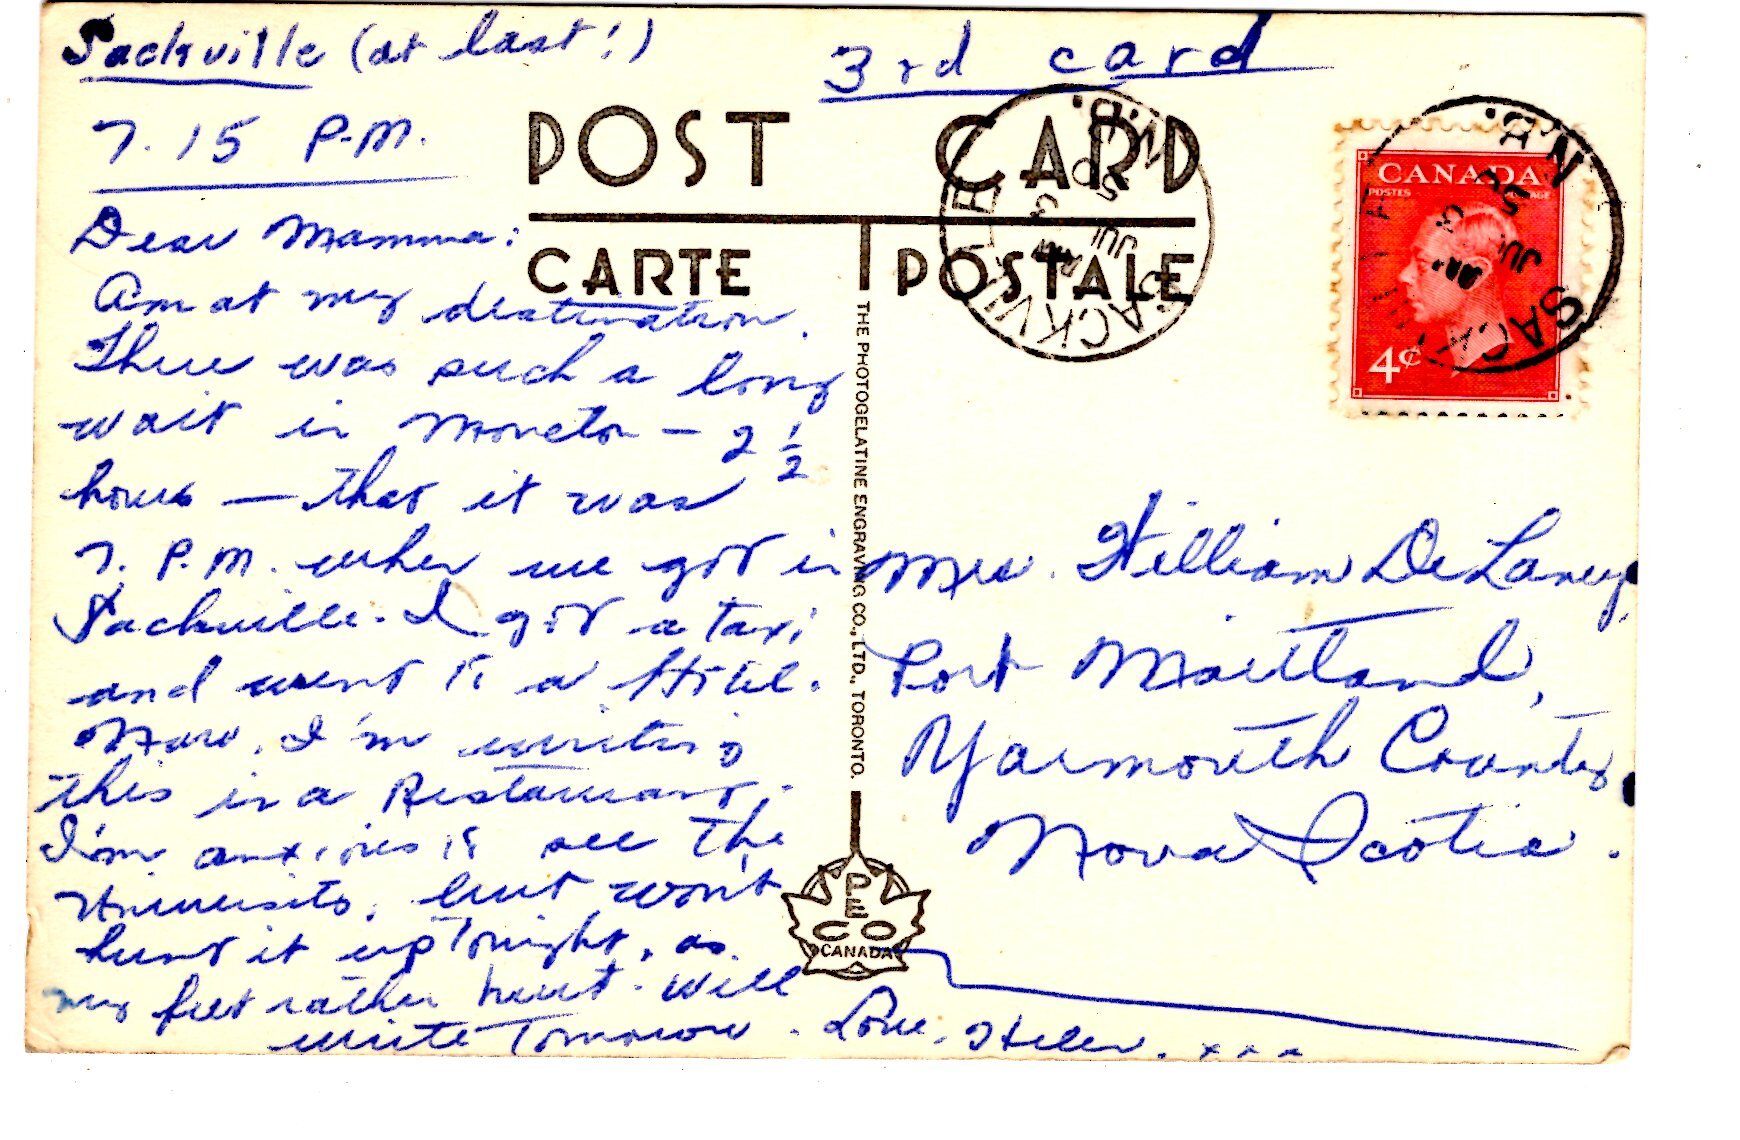 Sackville (at last!)
3rd card
7.15 P.M.
POST CARD
CARTE POSTALE
Dear Mamma:
Am at my destination.
There was such a long
wait in Moncton - 2 1/2
hours — that it was
7. P.M. when we got in
Sackville. I got a taxi
and went to a Hotel.
Now, I'm writing
this in a Restaurant.
I'm anxious to see the
University, but won't
hunt it up tonight, as
my feet rather hurt. Will
write tomorrow. Love, Helen. xxx
THE PHOTOGELATINE ENGRAVING CO., LTD., TORONTO.
PECO
CANADA
SACKVILLE
N.B.
JU 3
50
CANADA
POSTES
4¢
SACKVILLE
N.B.
JU 3
50
Mrs. William DeLaney,
Port Maitland,
Yarmouth County
Nova Scotia.